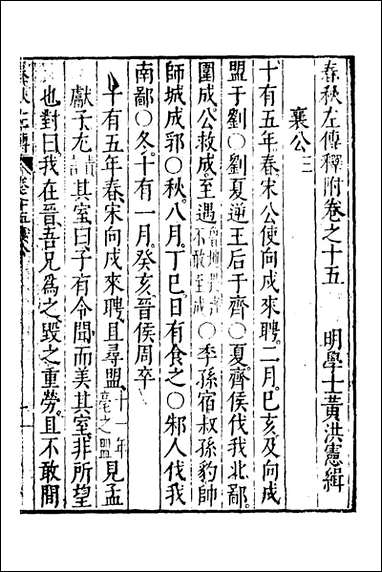 春秋左傳釋附卷之十五　明學士黃洪憲緝
襄公三
十有五年春宋公使向戌來聘。二月。己亥及向戌
盟于劉○劉夏逆王后于齊○夏。齊侯伐我北鄙。
圍成。公救成。至遇不敢至成○季孫宿叔孫豹帥
師城成郛○秋。八月。丁巳。日有食之○邾人伐我
南鄙○冬。十有一月。癸亥。晉侯周卒
十有五年春。宋向戌來聘。且尋盟。十一年亳之盟見孟
獻子尤其室。曰。子有令聞而美其室。非所望
也對曰。我在晉。吾兄為之。毀之重勞。且不敢間